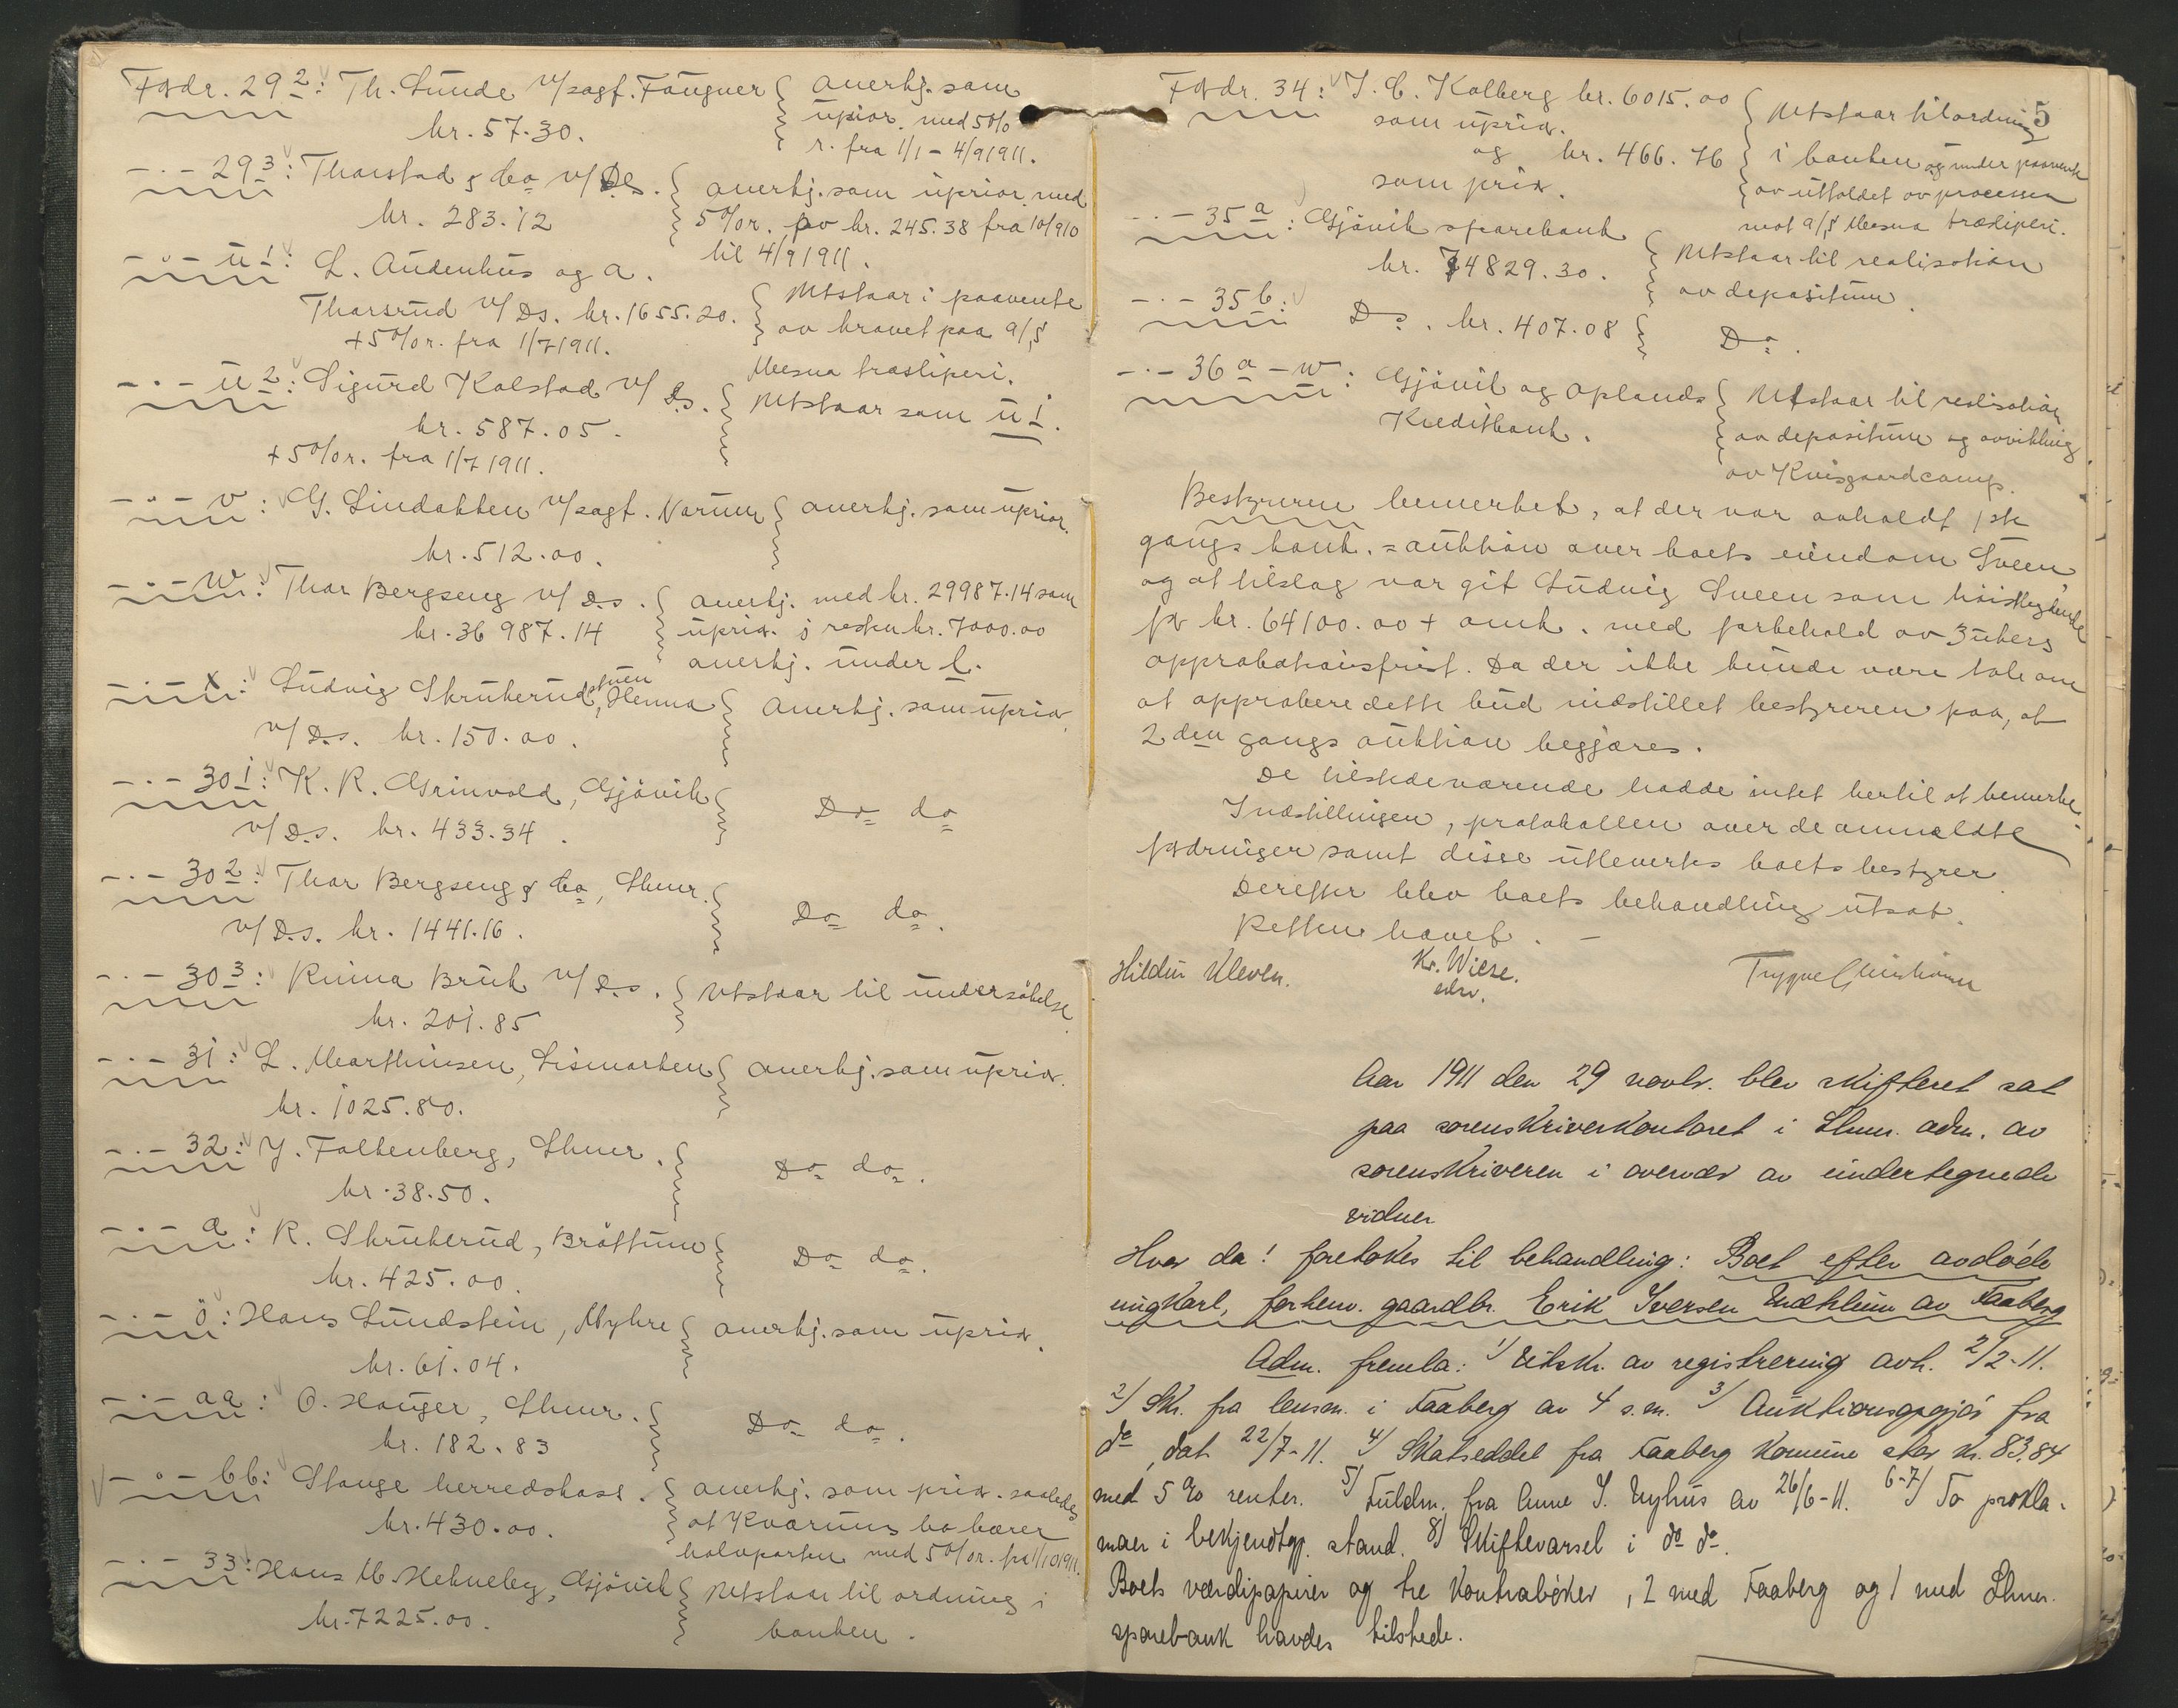 Fordr. 29 2: Th. Lunde v/sagf. Fougner
kr. 57.30.
anerkj. som
uprior. med 5%
r. fra 1/1 - 4/9 1911.
-·- 29 3: Thorstad & Co v/ Ds.
kr. 283.12
anerkj. som uprior. med
5% r. av kr. 245.38 fra 10/9 10
til 4/9 1911.
-·- u 1: L. Audenhus og A.
Thorsrud v/ Ds. kr. 1655.20.
+ 5% r. fra 1/7 1911.
Utstaar i paavente
av kravet paa a/s
Mesna træsliperi.
-·- u 2: Sigurd Kolstad v/ Ds.
kr. 587.05.
+ 5% r. fra 1/7 1911.
Utstaar som u 1.
-·- v: G. Lindakken v/sagf. Narum
kr. 512.00.
anerkj. som uprior.
-·- w: Thor Bergseng v/ Ds.
kr. 36 987.14
anerkj. med kr. 29987.14 som
uprior. & resten kr. 7000.00
anerkj. under l.
-·- x: Ludvig Skrukerud, Henna
v/ Ds. kr. 150.00.
Anerkj. som uprior.
-·- 30 1: K. R. Grinvold, Gjövik
v/ Ds. kr. 433.34.
Do do
-·- 30 2: Thor Bergseng & Co, Lhmr.
v/ Ds. kr. 1441.16.
Do do.
-·- 30 3: Ruina Bruk v/ Ds.
kr. 201.85
Utstaar til undersökelse.
-·- 31: L. Marthinsen, Lismarken
kr. 1025.80.
anerkj. som uprior.
-·- 32: J. Falkenberg, Lhmr.
kr. 38.50.
Do do.
-·- a: R. Skrukerud, Bröttum
kr. 425.00.
Do do.
-·- ö: Hans Lundstein, Myhre
kr. 61.04.
anerkj. som uprior.
-·- aa: O. Hauger, Lhmr.
kr. 182.83
Do do.
-·- bb: Stange herredskass.
kr. 430.00.
anerkj. som prior. saaledes
at Kværums bo bærer
halvparten med 5% r. fra 1/10 1911.
-·- 33: Hans M. Helneby, Gjövik
kr. 7225.00.
Utstaar til ordning i
banken.
5
Fordr. 34: J. C. Kolberg kr. 6015.00
som uprior.
og kr. 466.76
som prior.
Utstaar til ordning
i banken og under paavente
av utfaldet av processen
mot a/s Mesna træsliperi.
-·- 35 a: Gjövik sparebank
kr. 74829.30.
Utstaar til realisation
av depositum.
-·- 35 b:
Do. kr. 407.08
Do.
-·- 36 a - w: Gjövik og Oplands
Kreditbank.
Utstaar til realisation
av depositum og avvikling
av Kvisgaardcomp.
Bestyreren bemerket, at der var avholdt 1ste
gangs konk.=auktion over boets eiendom Sveen
og at tilslag var git Ludvig Sveen som höistbydende
for kr. 64100.00 + omk. med forbehold av 3 ukers
approbationsfrist. Da der ikke kunde være tale om
at approbere dette bud indstillet bestyreren paa, at
2den gangs auktion begjæres.
De tilstedeværende hadde intet hertil at bemerke.
Indstillingen, protokollen over de anmeldte
fordringer samt disse utleverles boets bestyrer.
Derefter blev boets behandling utsat.
Retten hævet. -
Hildur Kleven.
Kr. Wiese.
edsv.
Trygve Christiansen
Aar 1911 den 29 novbr. blev skifteret sat
paa sorenskriverkontoret i Lhmr. adm. av
sorenskriveren i overvær av undertegnede
vidner
Hvor da! foretokes til behandling: Boet efter avdøde
ungkarl, forhenv. gaardbr. Erik Iversen Mæhlum av Faaberg
Adm. fremla: 1/ Utskr. av registrering avh. 2/2-11.
2/ Skr. fra lensm. i Faaberg av 4 s.m. 3/ Auktionsopgjør fra
do, dat 22/7-11. 4/ Skatseddel fra Faaberg Komune stor kr. 83.84
med 5% renter. 5/ Fuldm. fra Anne I. Nyhus av 26/6-11. 6-7/ To prokla-
maer i bekjendtgj. stand. 8/ Skiftevarsel i do do.
Boets værdipapirer og tre kontrabøker, 2 med Faaberg og 1 med Lhmr.
sparebank havdes tilstede.